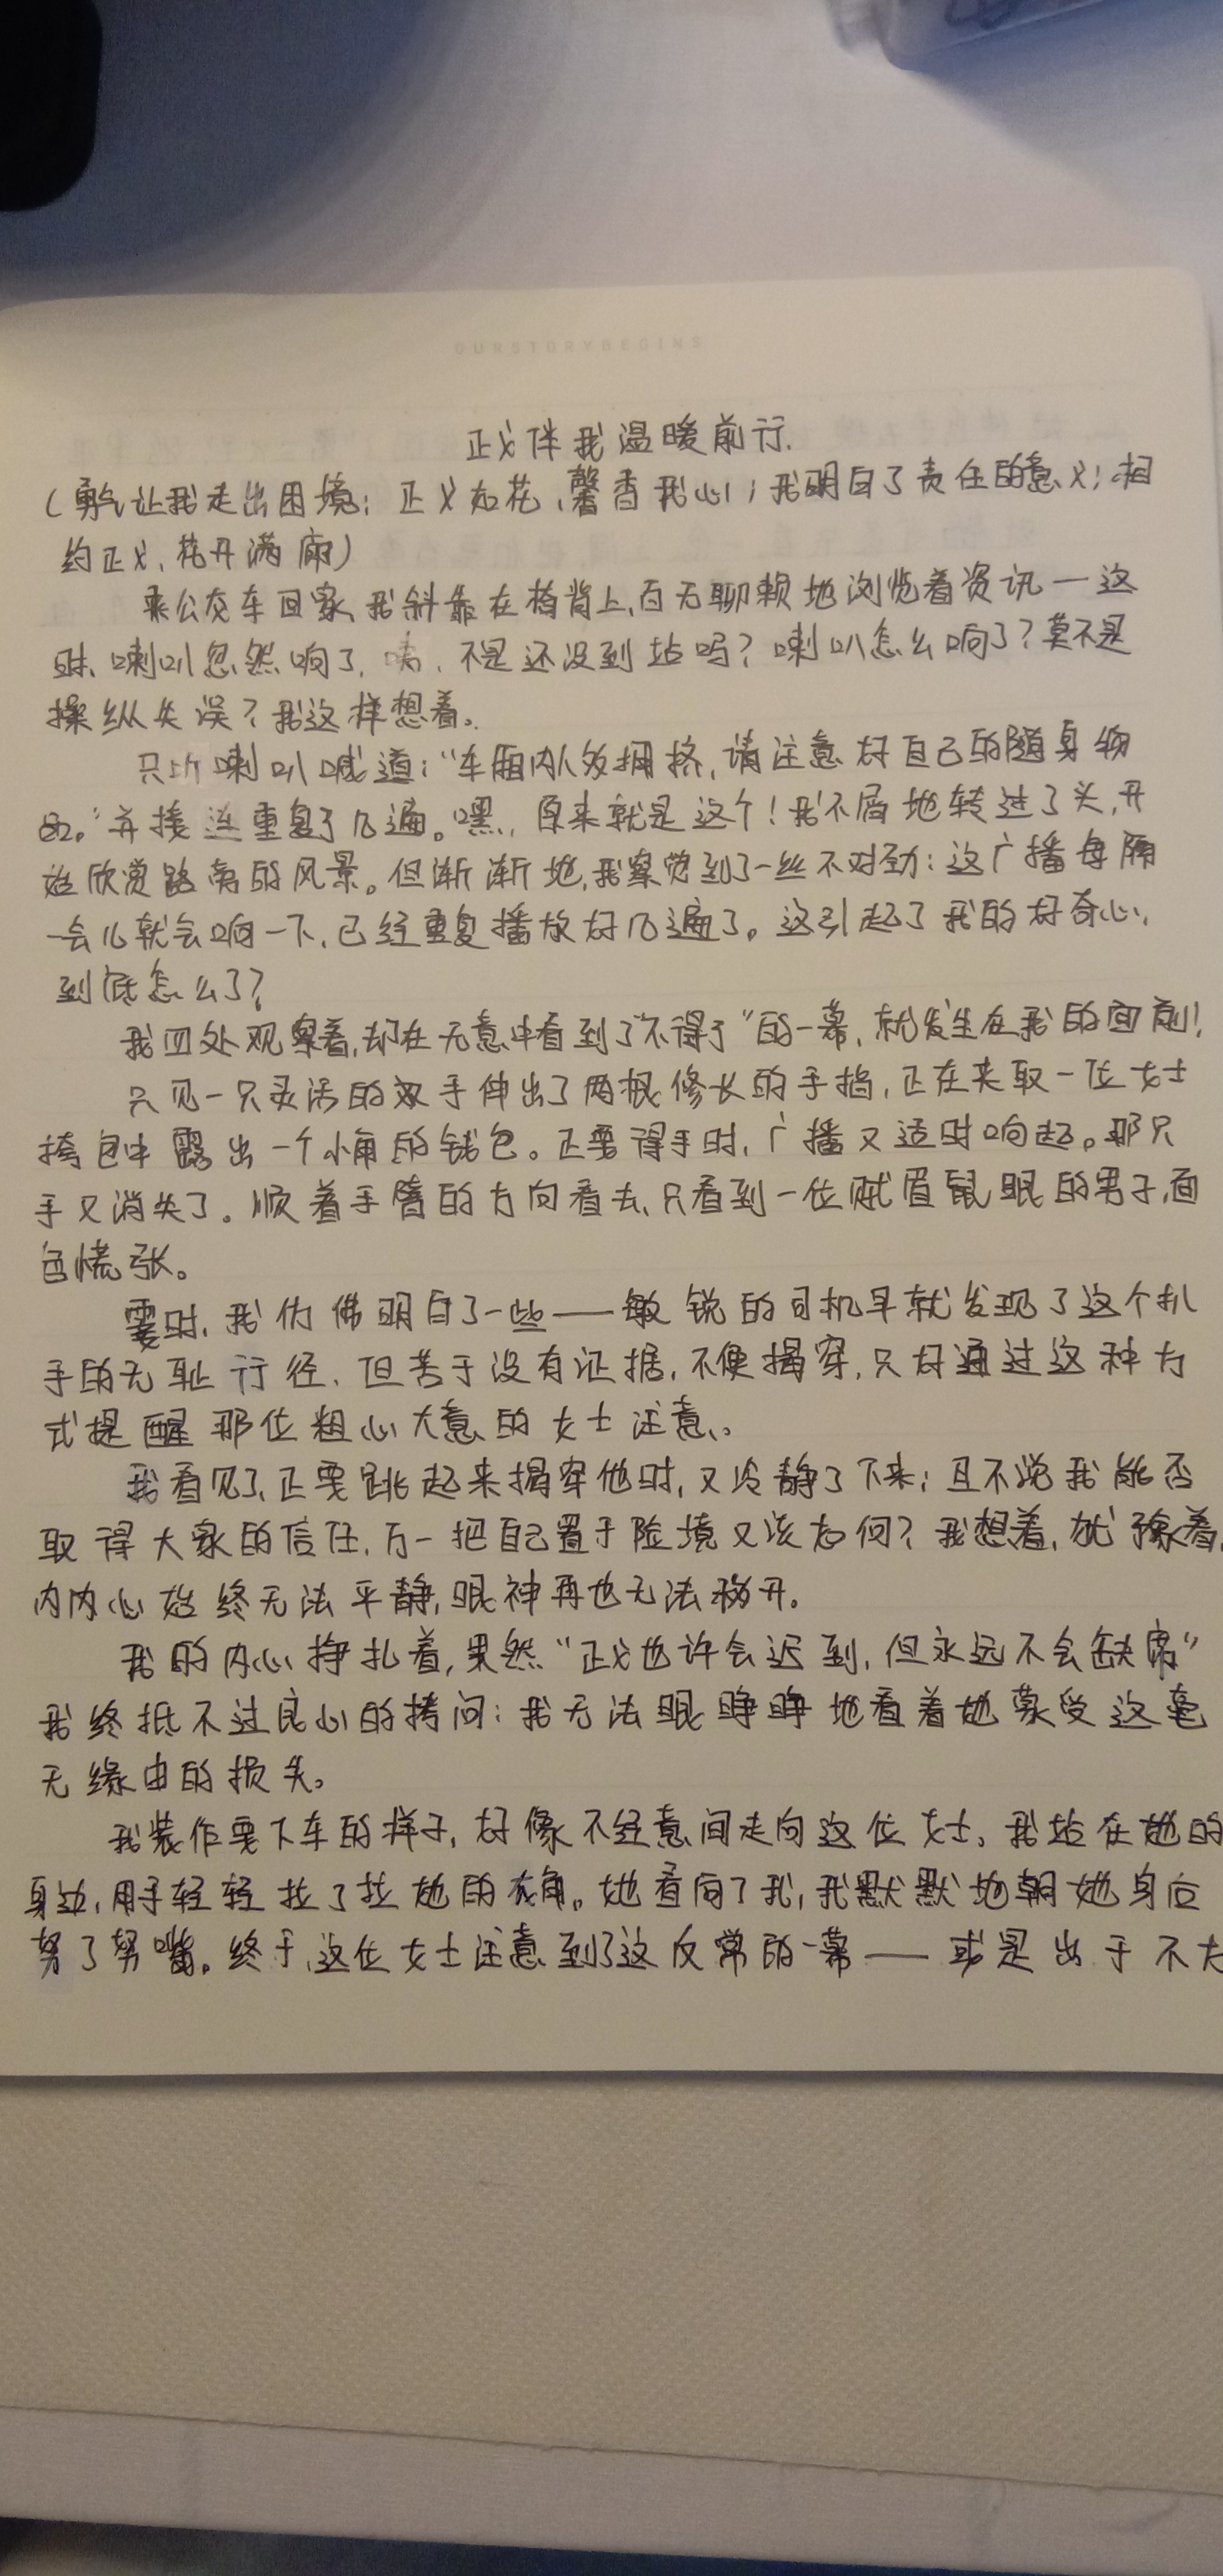 OURSTORYBEGINS
正义伴我温暖前行.
(勇气让我走出困境；正义如花,馨香我心；我明白了责任的意义；相
约正义,花开满廊)
乘公交车回家,我斜靠在椅背上,百无聊赖地浏览着资讯—这
时,喇叭忽然响了,咦,不是还没到站吗?喇叭怎么响了?莫不是
操纵失误?我这样想着。
只听喇叭喊道:“车厢内人多拥挤,请注意好自己的随身物
品。”并接连重复了几遍。嘿,原来就是这个!我不屑地转过了头,开
始欣赏路旁的风景。但渐渐地,我察觉到了一丝不对劲:这广播每隔
一会儿就会响一下,已经重复播放好几遍了。这引起了我的好奇心,
到底怎么了?
我四处观察着,却在无意中看到了“不得了”的一幕,就发生在我的面前!
只见一只灵活的双手伸出了两根修长的手指,正在夹取一位女士
挎包中露出一个小角的钱包。正要得手时,广播又适时响起。那只
手又消失了。顺着手臂的方向看去,只看到一位贼眉鼠眼的男子,面
色慌张。
霎时,我仿佛明白了一些——敏锐的司机早就发现了这个扒
手的无耻行径,但苦于没有证据,不便揭穿,只好通过这种方
式提醒那位粗心大意的女士注意。
我看见了,正要跳起来揭穿他时,又冷静了下来;且不说我能否
取得大家的信任,万一把自己置于险境又该如何?我想着,犹豫着,
内内心始终无法平静,眼神再也无法移开。
我的内心挣扎着,果然“正义也许会迟到,但永远不会缺席”
我终抵不过良心的拷问:我无法眼睁睁地看着她蒙受这毫
无缘由的损失。
我装作要下车的样子,好像不经意间走向这位女士。我站在她的
身边,用手轻轻拉了拉她的衣角。她看向了我,我默默地朝她身后
努了努嘴。终于,这位女士注意到了这反常的一幕——或是出于不太